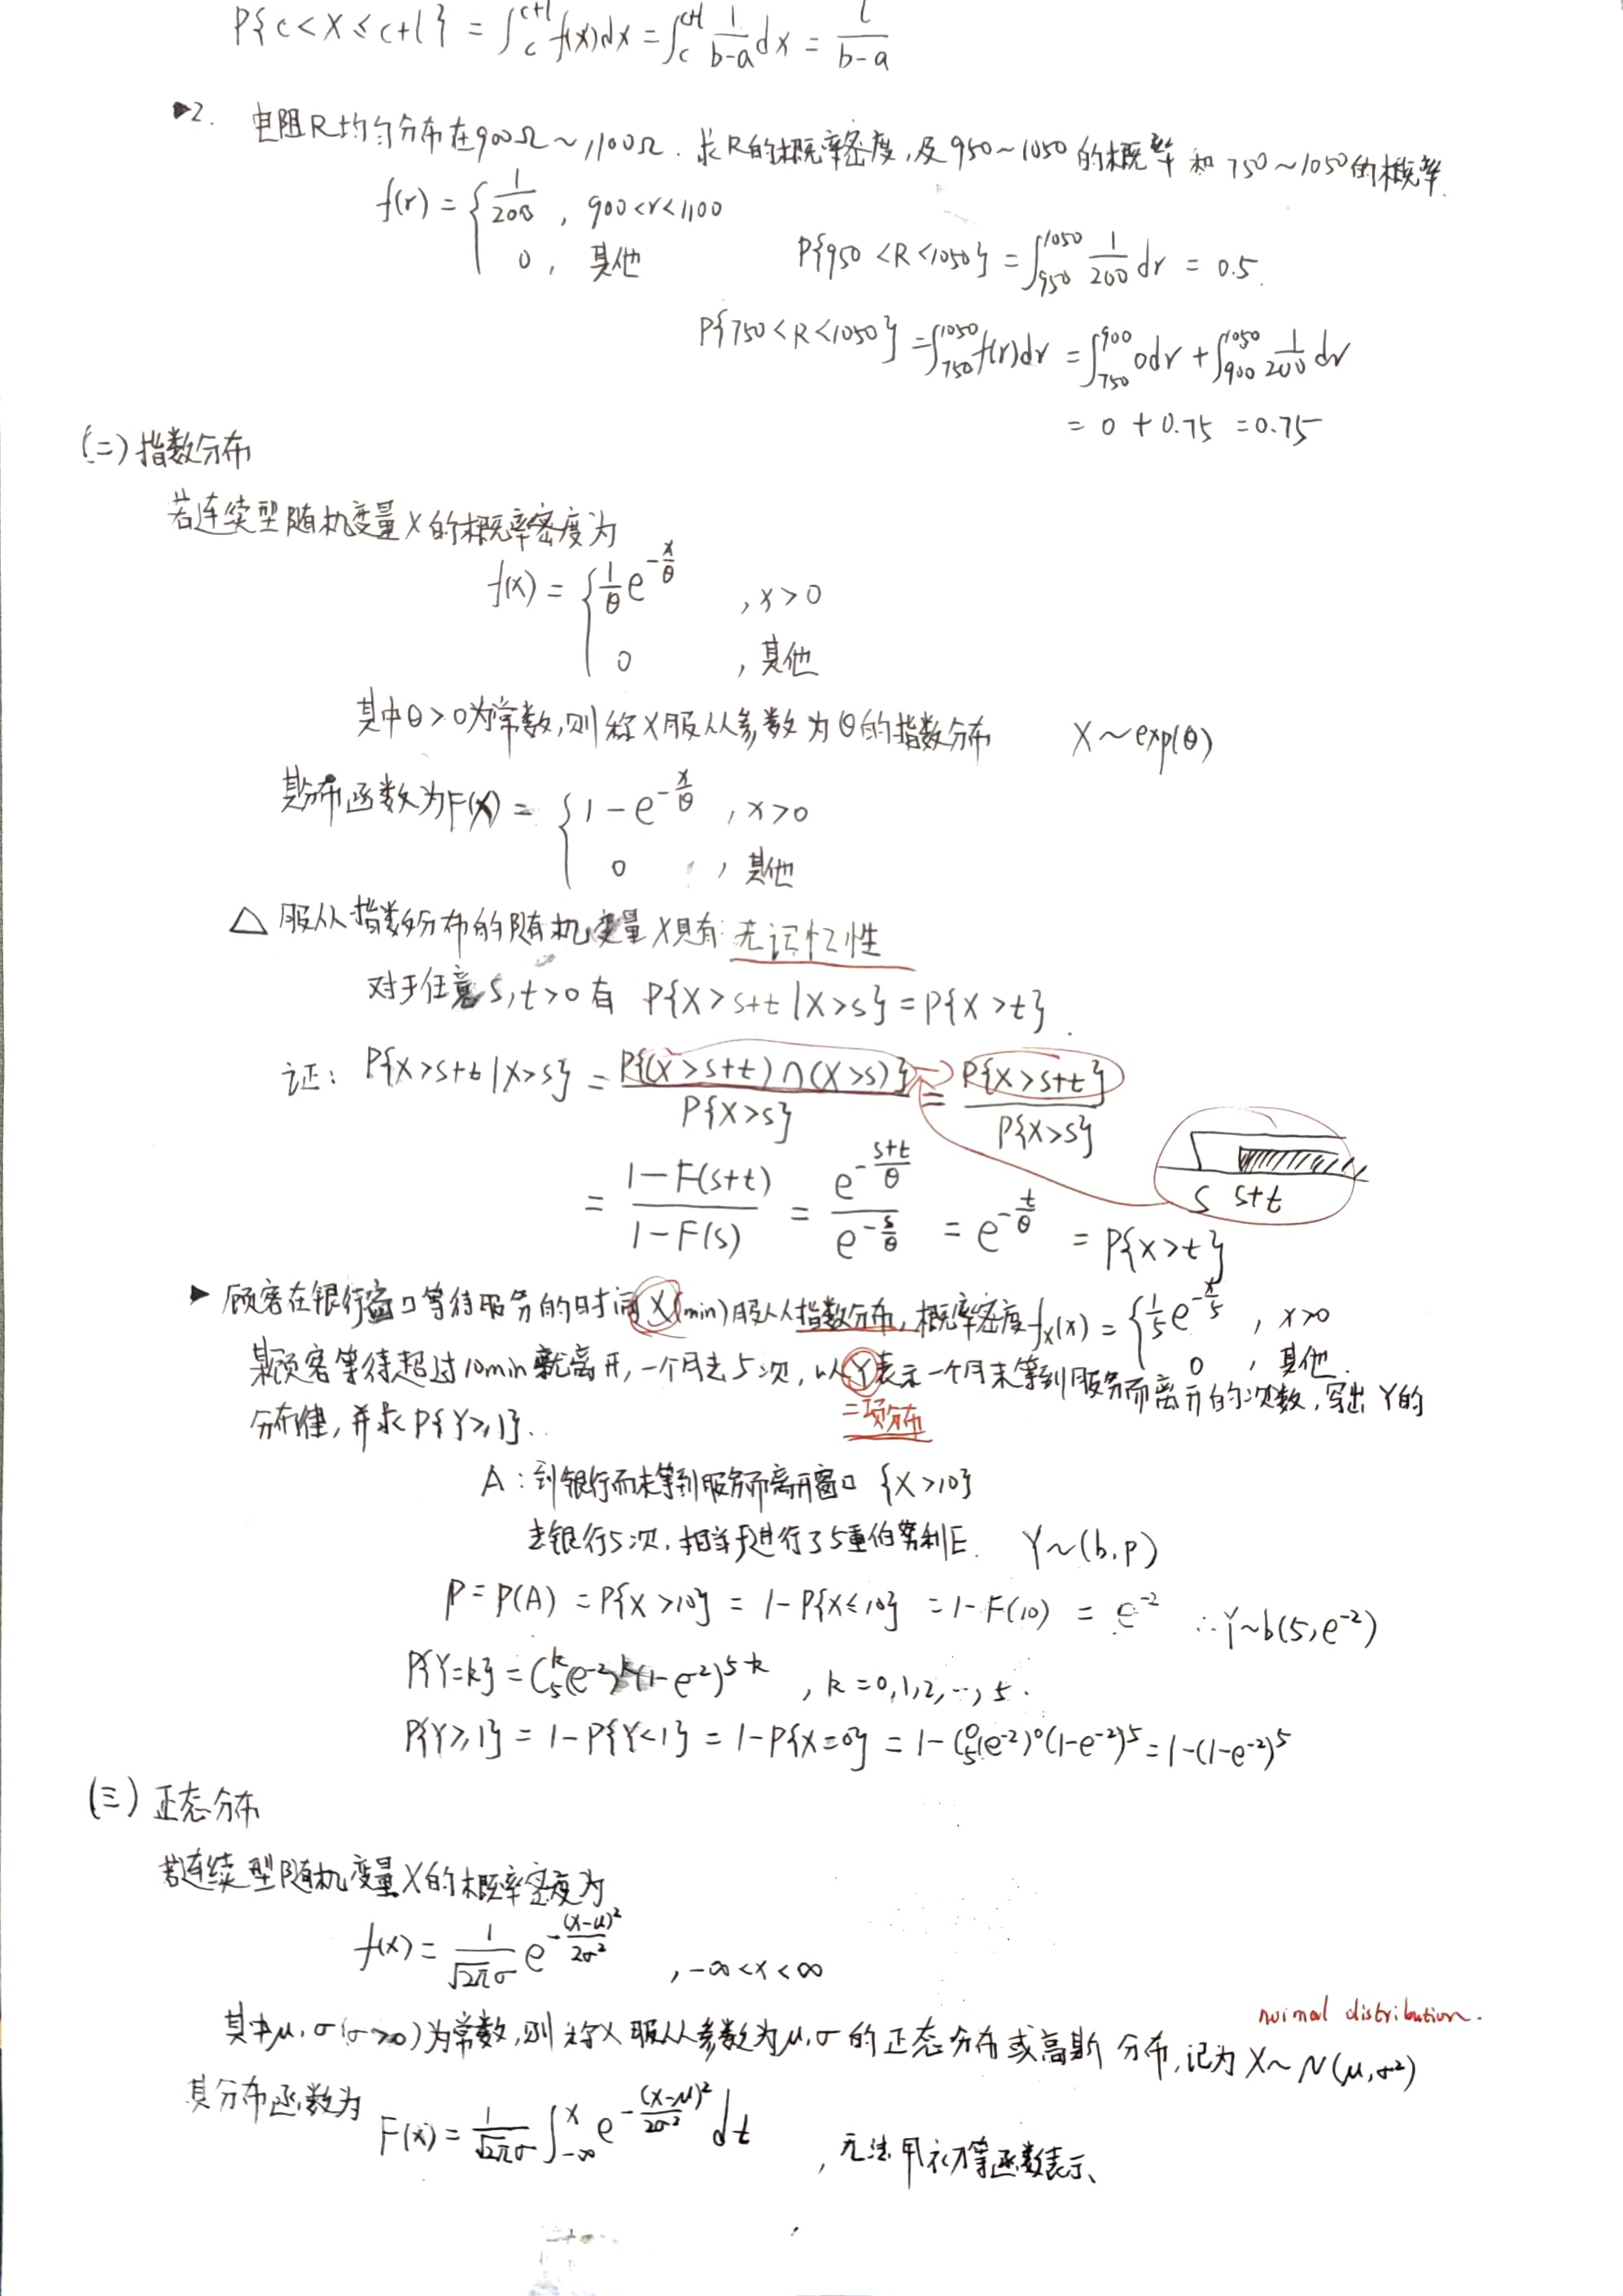 P{c<X≤c+l} = ∫_c^{c+l} f(x)dx = ∫_c^{c+l} 1/(b-a) dx = l/(b-a)
▶2. 电阻R均匀分布在900Ω~1100Ω. 求R的概率密度,及950~1050的概率和750~1050的概率.
f(r) = { 1/200 , 900<r<1100
0 , 其他
P{950<R<1050} = ∫_{950}^{1050} 1/200 dr = 0.5.
P{750<R<1050} = ∫_{750}^{1050} f(r)dr = ∫_{750}^{900} 0dr + ∫_{900}^{1050} 1/200 dr
= 0 + 0.75 = 0.75
(二) 指数分布
若连续型随机变量X的概率密度为
f(x) = { 1/θ e^{-x/θ} , x>0
0 , 其他
其中θ>0为常数,则称X服从参数为θ的指数分布 X~exp(θ)
其分布函数为F(x) = { 1-e^{-x/θ} , x>0
0 , 其他
△ 服从指数分布的随机变量X具有 无记忆性
对于任意s,t>0 有 P{X>s+t|X>s} = P{X>t}.
证: P{X>s+t|X>s} = P{(X>s+t)∩(X>s)}/P{X>s} = P{X>s+t}/P{X>s}
s s+t
= (1-F(s+t))/(1-F(s)) = e^{-(s+t)/θ}/e^{-s/θ} = e^{-t/θ} = P{X>t}
▶ 顾客在银行窗口等待服务的时间X(min)服从指数分布,概率密度f_X(x) = { 1/5 e^{-x/5} , x>0
0 , 其他.
某顾客等待超过10min就离开,一个月去5次,以Y表示一个月未等到服务而离开的次数,写出Y的
二项分布
分布律,并求P{Y≥1}.
A:到银行而未等到服务而离开窗口 {X>10}
去银行5次,相当于进行了5重伯努利E. Y~(b,p)
P=P(A) = P{X>10} = 1-P{X≤10} = 1-F(10) = e^{-2} ∴Y~b(5,e^{-2})
P{Y=k} = C_5^k(e^{-2})^k(1-e^{-2})^{5-k} , k=0,1,2,…,5.
P{Y≥1} = 1-P{Y<1} = 1-P{X=0} = 1-C_5^0(e^{-2})^0(1-e^{-2})^5 = 1-(1-e^{-2})^5
(三) 正态分布
若连续型随机变量X的概率密度为
f(x) = 1/(√2π σ) e^{-(x-μ)²/2σ²} , -∞<x<∞
normal distribution.
其中μ,σ(σ>0)为常数,则称X服从参数为μ,σ的正态分布或高斯分布,记为X~N(μ,σ²)
其分布函数为 F(x) = 1/(√2π σ) ∫_{-∞}^x e^{-(x-μ)²/2σ²} dt , 无法用初等函数表示、